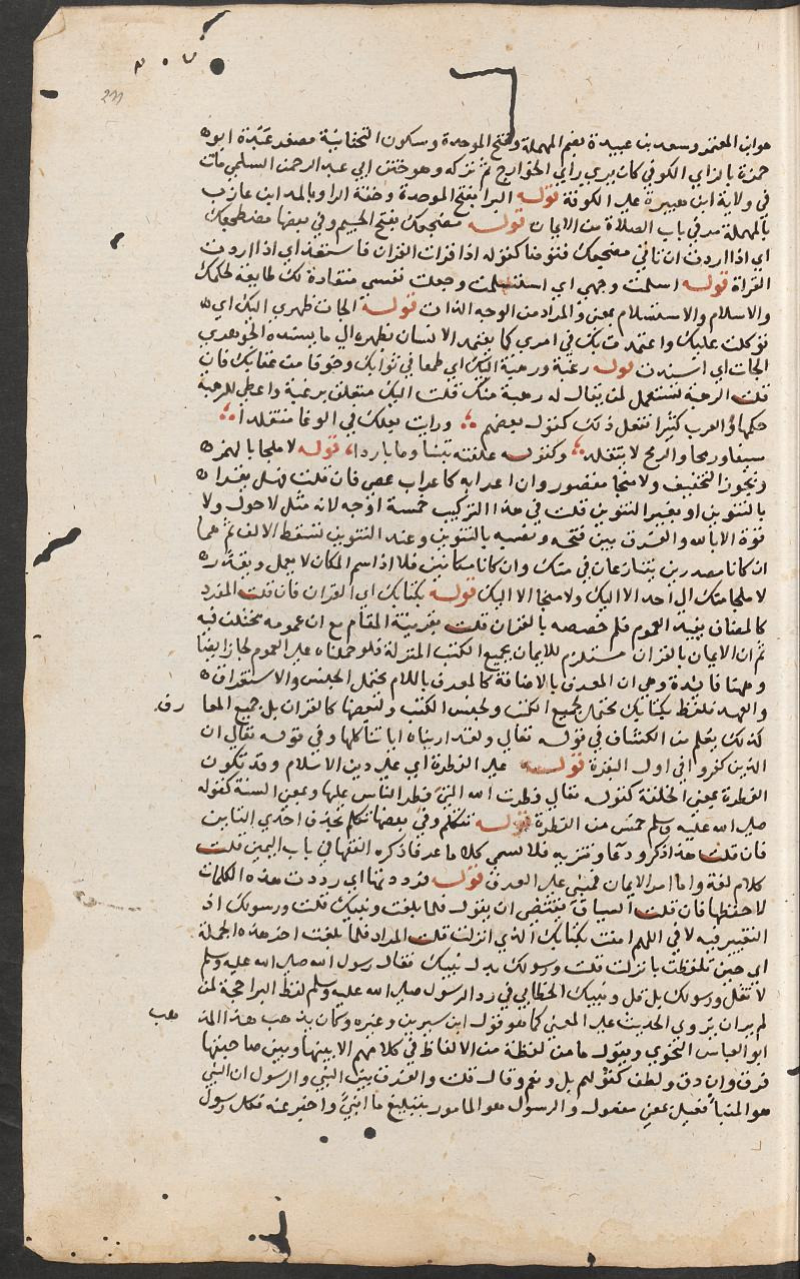 هو ابن المعتمر وسعد بن عبيدة بضم المهملة وفتح الموحدة وسكون التحتانية مصغر عبدة ابو
حمزة بالزاي الكوفي كان يري راي الخوارج ثم تركه وهو ختن ابي عبد الرحمن السلمي مات
في ولاية ابن هبيرة علي الكوفة قوله البرا بفتح الموحدة وخفة الرا وبالمد ابن عازب
بالمهملة مر في باب الصلاة من الايمان قوله مضجعك بفتح الجيم وفي بعضها مضطجعك
اي اذا اردت ان تاتي مضجعك فتوضا كقوله اذا قرات القران فاستعذ اي اذا اردت
القراة قوله اسلمت وجهي اي استسلمت وجعلت نفسي منقادة لك طايعة لحكمك
والاسلام والاستسلام بمعني والمراد من الوجه الذات قوله الجات ظهري اليك اي
توكلت عليك واعتمدت بك في امري كما يعتمد الانسان بظهره الي ما يسنده الجوهري
الجات اي اسندت قوله رغبة ورهبة اليك اي طمعا في ثوابك وخوفا من عقابك فان
قلت الرهبة تستعمل لمن يقال له رهبة منك قلت اليك متعلق برغبة واعطي للرهبة
حكمها والعرب كثيرا تفعل ذلك كقول بعضهم ورايت بعلك في الوغا متقلدا
سيفا ورمحا والرمح لا يتقلد وكقوله علفته تبنا وما باردا قوله لا ملجا بالهمزه
ويجوز التخفيف ولا منجا مقصور وان اعرابه كاعراب عصي فان قلت فهل يقرا
بالتنوين او بغير التنوين قلت في هذا التركيب خمسة اوجه لانه مثل لا حول ولا
قوة الا بالله والفرق بين فتحه ونصبه بالتنوين وعند التنوين تسقط الالف ثم هما
ان كانا مصدرين يتنازعان في منك وان كانا مكانين فلا اذ اسم المكان لا يعمل وتقديره
لا ملجا منك الي احد الا اليك ولا منجا الا اليك قوله بكتابك اي القران فان قلت المفرد
كالمضاف يفيد العموم فلم خصصه بالقران قلت بقرينة المقام مع ان عمومه مختلف فيه
ثم ان الايمان بالقران مستلزم للايمان بجميع الكتب المنزلة فلو حملناه علي العموم لجاز ايضا
وههنا فايدة وهي ان المعرف بالاضافة كالمعرف باللام يحتمل الجنس والاستغراق
والعهد فلفظ بكتابك يحتمل لجميع الكتب ولجنس الكتب ولبعضها كالقران بل جميع المعا
رف
كذلك يعلم من الكشاف في قوله تعالي ولقد اريناه اياتنا كلها وفي قوله تعالي ان
الذين كفروا في اول البقرة قوله علي الفطرة اي علي دين الاسلام وقد تكون
الفطرة بمعني الخلقة كقوله تعالي فطرت الله التي فطر الناس عليها وبمعني السنة كقوله
صلي الله عليه وسلم خمس من الفطرة قوله تتكلم وفي بعضها تكلم بحذف احدي التاين
فان قلت هذا ذكر ودعا وتنزيه فلا تسمي كلاما عرفا ذكره الفقها في باب اليمين قلت
كلام لغة واما امر الايمان فمبني علي العرف قوله فرددتها اي رددت هذه الكلمات
لاحفظها فان قلت السياق يقتضي ان يقول فلما بلغت ونبيك قلت ورسولك اذ
التغيير فيه لا في اللهم امنت بكتابك الذي انزلت قلت المراد فلما بلغت اخر هذه الجملة
اي حين تلفظت بانزلت قلت ورسولك بدل نبيك فقال رسول الله صلي الله عليه وسلم
لا تقل ورسولك بل قل ونبيك الخطابي في رد الرسول صلي الله عليه وسلم لفظ البرا حجة لمن
لم ير ان يروي الحديث علي المعني كما هو قول ابن سيرين وغيره وكان يذهب هذا المذ
هب
ابو العباس النحوي ويقول ما من لفظة من الالفاظ في كلامهم الا بينها وبين صاحبتها
فرق وان دق ولطف كقولهم بل ونعم وقال قلت والفرق بين النبي والرسول ان النبي
هو المنبا فعيل بمعني مفعول والرسول هو المامور بتبليغ ما انبي واخبر عنه فكل رسول